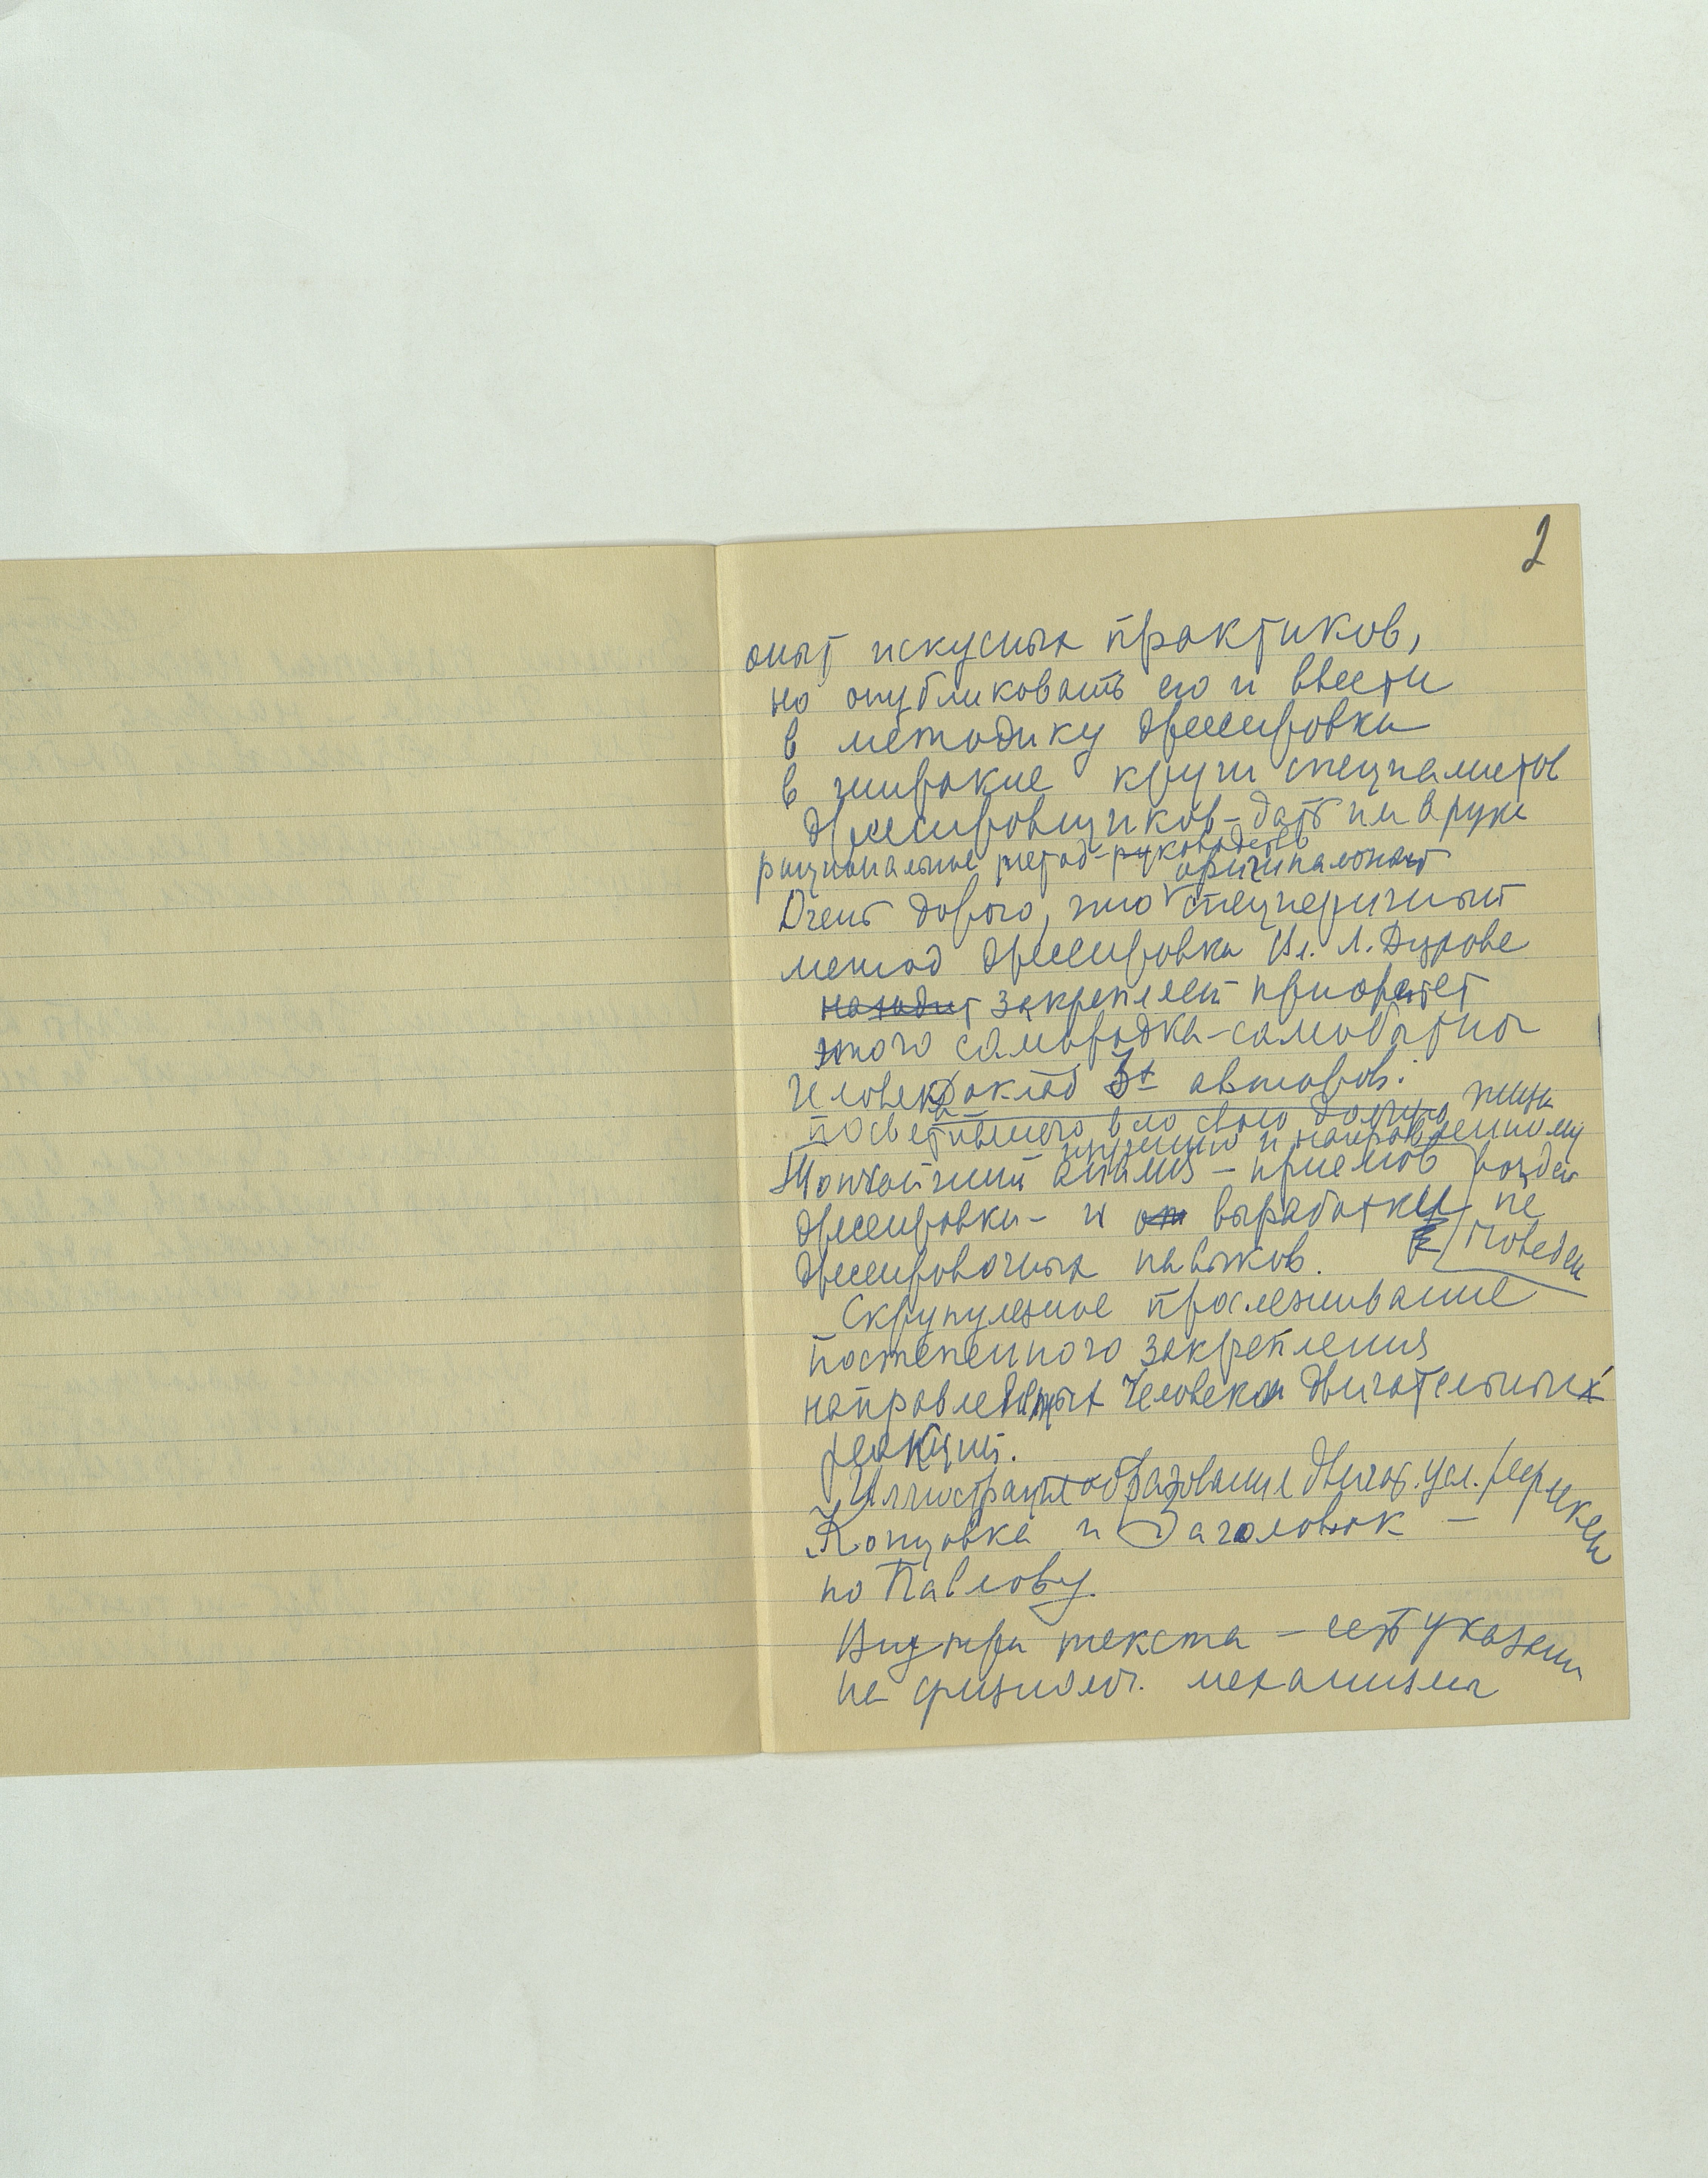 2
опыт искусных практиков,
но опубликовать его и ввести
в методику дрессировки
в широкие круги специалистов
дрессировщиков – дать им в руки
рациональное метод-руководство
оригинальный
Очень дорого, что специфичный
метод дрессировки Вл. Л. Дурова
находит закрепляет приоретет
этого самородка-самобытного
человека Доклад 3х авторов.
посветившего всю свою долгую жизнь
изучению и направленному
Тончайший анализ – приемов воздей
дрессировки – и от выработки на
дрессировочных навыков. Поведен
Скрупулезное прослеживание
постепенного закрепления
направленных человеком двигательных
реакций.
Иллюстрация образование двигат. усл. рефлексы
Концовка и Заголовок –
по Павлову.
Внутри текста – есть указани
на физиолог. механизмы